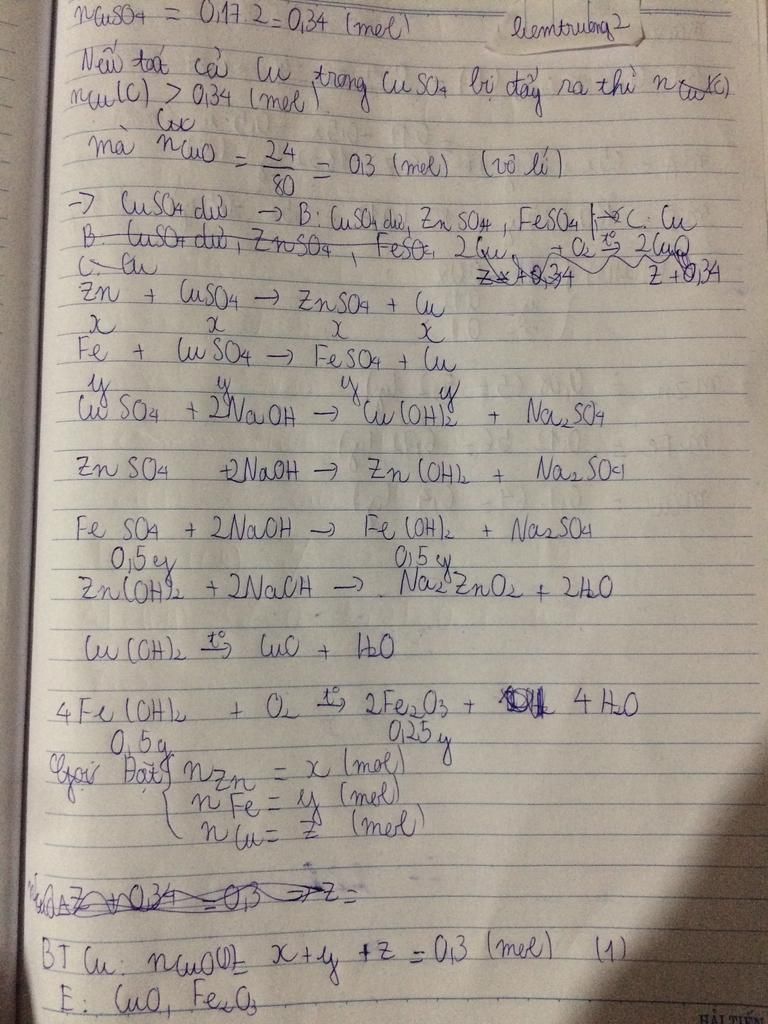 nCuSO4 = 0,17.2 = 0,34 (mol)
liemtruong2
Nếu toàn cả Cu trong CuSO4 bị đẩy ra thì nCu(C)
nCu(C) > 0,34 (mol)
mà nCuO = 24/80 = 0,3 (mol) (vô lí)
-> CuSO4 dư -> B: CuSO4 dư, ZnSO4, FeSO4 C: Cu
B: CuSO4 dư, ZnSO4, FeSO4 2Cu + O2 t°-> 2CuO
C: Cu z+0,34 z+0,34
Zn + CuSO4 -> ZnSO4 + Cu
x x x x
Fe + CuSO4 -> FeSO4 + Cu
y y y y
CuSO4 + 2NaOH -> Cu(OH)2 + Na2SO4
ZnSO4 +2NaOH -> Zn(OH)2 + Na2SO4
FeSO4 + 2NaOH -> Fe(OH)2 + Na2SO4
0,5y 0,5y
Zn(OH)2 + 2NaOH -> Na2ZnO2 + 2H2O
Cu(OH)2 t°-> CuO + H2O
4Fe(OH)2 + O2 t°-> 2Fe2O3 + 4H2O
0,5y 0,25y
Gọi Đặt { nZn = x (mol)
nFe = y (mol)
nCu = z (mol)
z + 0,34 = 0,3 -> z =
BT Cu: nCuO(1) = x+y+z = 0,3 (mol) (1)
E: CuO, Fe2O3
HẢI TIẾN